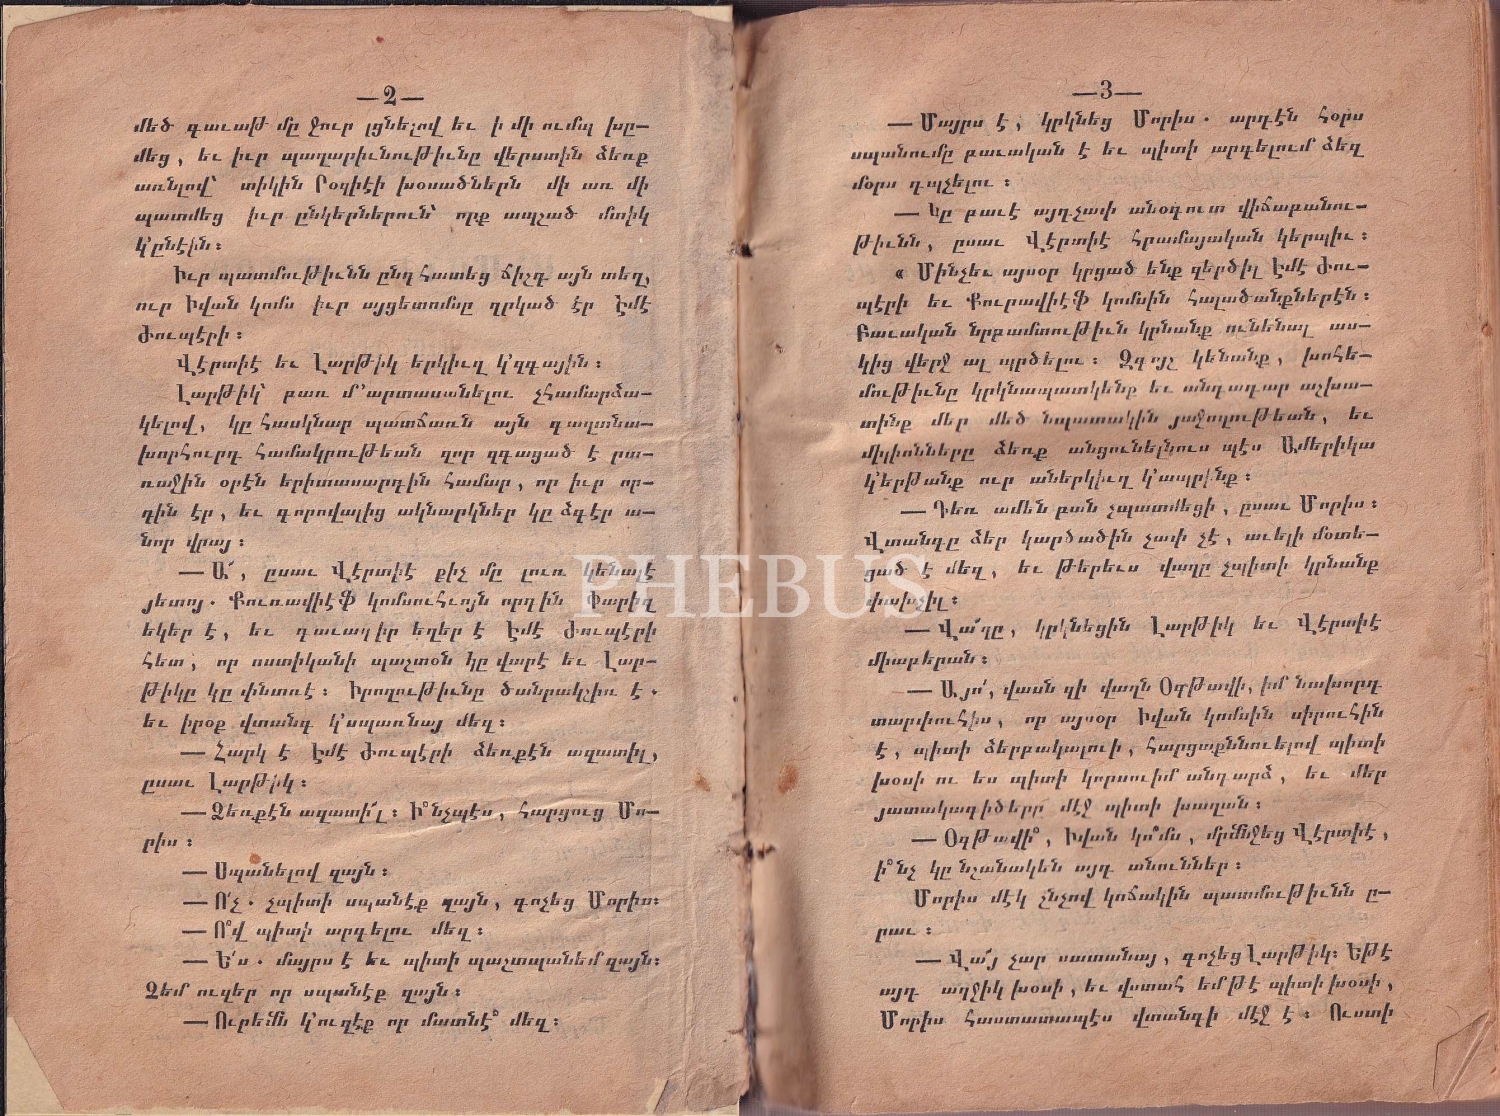 —2—
մեծ գաւաթ մը ջուր լցնելով եւ ի մի ումպ խը-
մեց, եւ իւր պաղարիւնութիւնը վերստին ձեռք
առնլով՝ տիկին Րօզիէի խօսածներն մի առ մի
պատմեց իւր ընկերներուն՝ որք ապշած մտիկ
կ'ընէին։
Իւր պատմութիւնն ընդհատեց ճիշդ այն տեղ,
ուր Իվան կոմս իւր այցետոմսը դրկած էր Էմէ
Ժուպէրի։
Վէրտիէ եւ Լարթիկ երկիւղ կ'զգային։
Լարթիկ՝ բառ մ'արտասանելու չհամարձա-
կելով, կը հասկնար պատճառն այն գաղտնա-
խորհուրդ համակրութեան զոր զգացած է րա-
ռաջին օրէն երիտասարդին համար, որ իւր որ-
դին էր, եւ գորովալից ակնարկներ կը ձգէր ա-
նոր վրայ։
— Ա՜, ըսաւ Վէրտիէ քիչ մը լուռ կենալէ
յետոյ. Քուռավիէֆ կոմսուհւոյն որդին Փարիզ
եկեր է, եւ դաւադիր եղեր է Էմէ Ժուպէրի
հետ, որ ոստիկանի պաշտօն կը վարէ եւ Լար-
թիկը կը փնտռէ։ Իրողութիւնը ծանրակշիռ է.
եւ իրօք վտանգ կ'սպառնայ մեզ։
— Հարկ է Էմէ Ժուպէրի ձեռքէն ազատիլ,
ըսաւ Լարթիկ։
— Ձեռքէն ազատի՜լ։ Ի՞նչպէս, հարցուց Մո-
րիս։
— Սպանելով զայն։
— Ո՛չ. չպիտի սպանէք զայն, գոչեց Մօրիս։
— Ո՞վ պիտի արգելու մեզ։
— Ե՛ս. մայրս է եւ պիտի պաշտպանեմ զայն։
Չեմ ուզեր որ սպանէք զայն։
— Ուրեմն կ'ուզէք որ մատնէ՞ մեզ։
—3—
— Մայրս է, կրկնեց Մօրիս. արդէն հօրս
սպանումը բաւական է եւ պիտի արգելում ձեզ
մօրս դպչելու։
— Կը բաւէ այդչափ անօգուտ վիճաբանու-
թիւնն, ըսաւ Վէրտիէ հրամայական կերպիւ։
« Մինչեւ այսօր կրցած ենք զերծիլ Էմէ Ժու-
պէրի եւ Քուրավիէֆ կոմսին հալածանքներէն։
Բաւական նրբամտութիւն կրնանք ունենալ աս-
կից վերջ ալ պրծելու։ Զգոյշ կենանք, խոհե-
մութիւնը կրկնապատկենք եւ անդադար աշխա-
տինք մեր մեծ նպատակին յաջողութեան, եւ
միլիոնները ձեռք անցունելնուս պէս Ամերիկա
կ'երթանք ուր աներկիւղ կ'ապրինք։
— Դեռ ամեն բան չպատմեցի, ըսաւ Մօրիս։
Վտանգը ձեր կարծածին չափ չէ, աւելի մօտե-
ցած է մեզ, եւ թերեւս վաղը չպիտի կրնանք
փախչիլ։
— Վա՜ղը, կրկնեցին Լարթիկ եւ Վէրտիէ
միաբերան։
— Այո՛, վասն զի վաղն Օգթավի, իմ նախորդ
տարփուհիս, որ այսօր Իվան կոմսին սիրուհին
է, պիտի ձերբակալուի, հարցաքննուելով պիտի
խօսի ու ես պիտի կորսուիմ անդարձ, եւ մեր
յատակագիծերը մէջ պիտի խաղան։
— Օգթավի՞, Իվան կո՞մս, մրմնջեց Վէրտիէ,
ի՞նչ կը նշանակեն այդ անուններ։
Մօրիս մէկ շնչով կոճակին պատմութիւնն ը-
րաւ։
— Վա՜յ չար սատանայ, գոչեց Լարթիկ։ Եթէ
այդ աղջիկ խօսի, եւ վստահ եմ թէ պիտի խօսի,
Մօրիս հաստատապէս վտանգի մէջ է։ Ուստի
PHEBUS